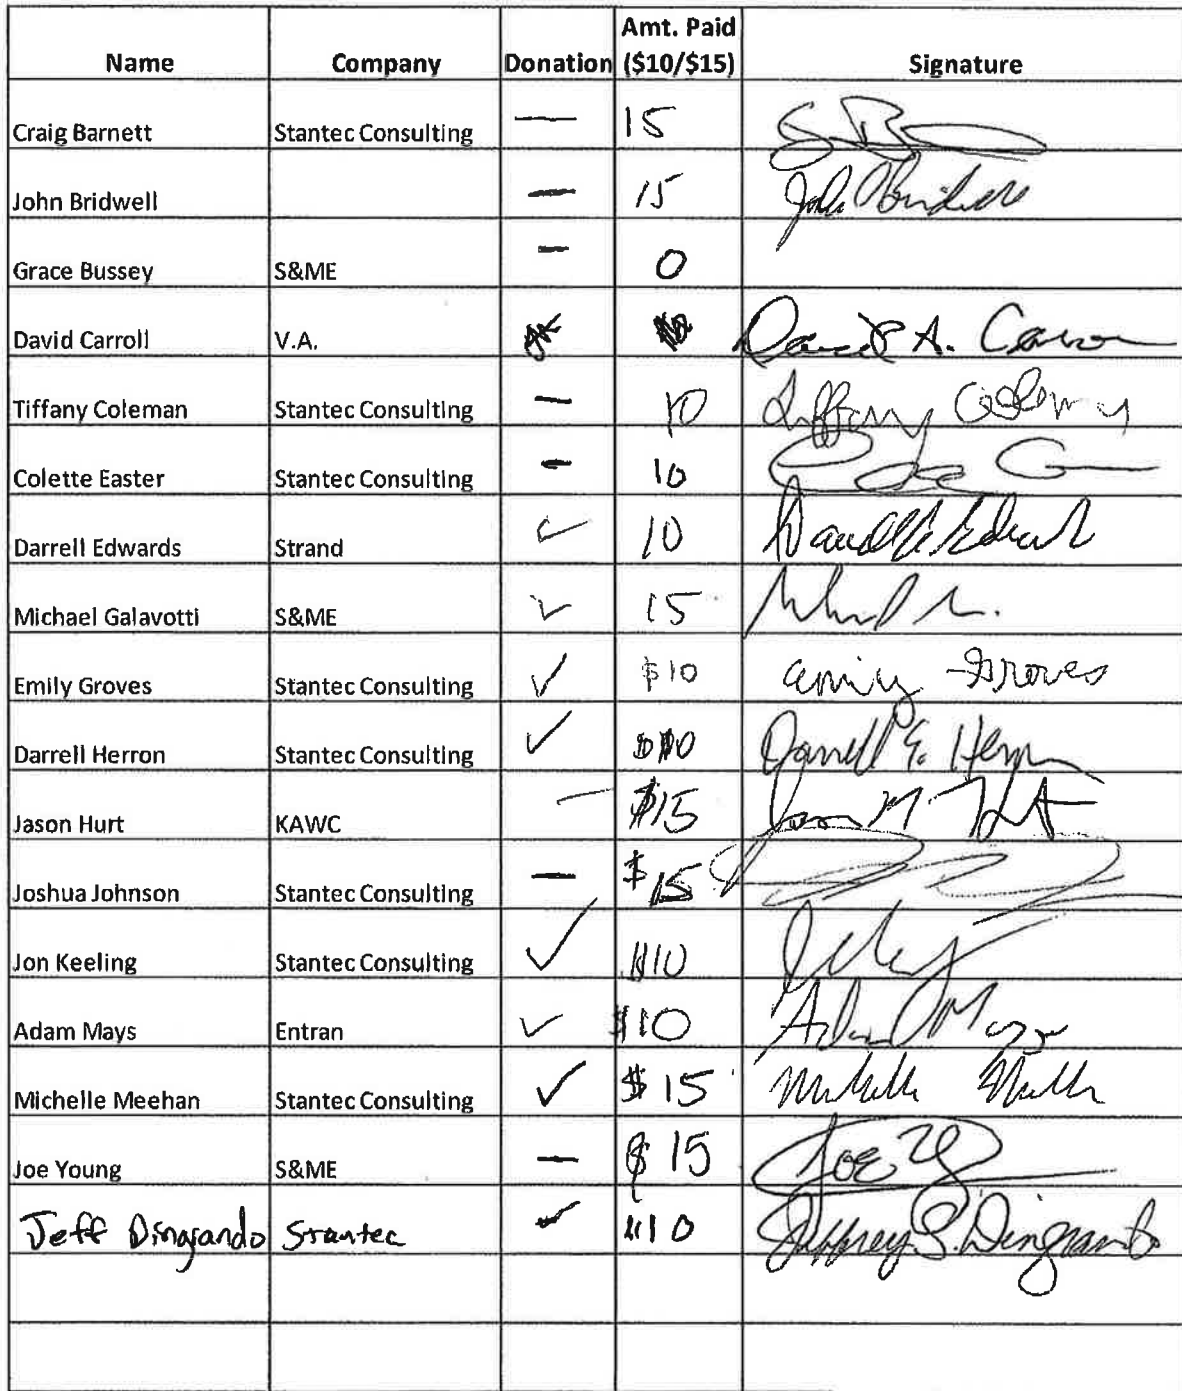 Name Company Donation Amt. Paid ($10/$15) Signature
Craig Barnett Stantec Consulting — 15
John Bridwell — 15 John Bridwell
Grace Bussey S&ME — 0
David Carroll V.A. David A. Carroll
Tiffany Coleman Stantec Consulting — 10 Tiffany Coleman
Colette Easter Stantec Consulting — 10
Darrell Edwards Strand ✓ 10
Michael Galavotti S&ME ✓ 15
Emily Groves Stantec Consulting ✓ $10 Emily Groves
Darrell Herron Stantec Consulting ✓ $10 Darrell E. Herron
Jason Hurt KAWC — $15 Jason M. Hurt
Joshua Johnson Stantec Consulting — $15
Jon Keeling Stantec Consulting ✓ $10
Adam Mays Entran ✓ $10 Adam Mays
Michelle Meehan Stantec Consulting ✓ $15 Michelle
Joe Young S&ME — $15 Joe Y
Jeff Dingrando Stantec ✓ $10 Jeffrey S. Dingrando